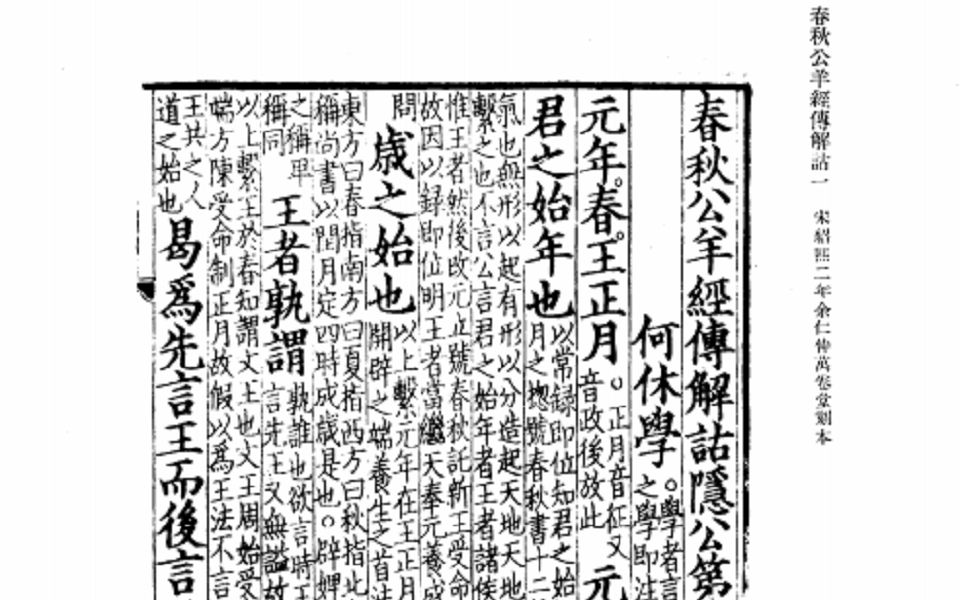 春秋公羊經傳解詁一　宋紹熙二年余仁仲萬卷堂刻本
春秋公羊經傳解詁隱公第
何休學
。學者言
之學即注
元年。春。王正月
。正月音征又
音政後放此
元
君之始年也
以常録即位知君之始
月之揔號春秋書十二
氣也無形以起有形以分造起天地天地
繫之也不言公言君之始年者王者諸侯
惟王者然後改元立號春秋託新王受命
故因以録即位明王者當繼天奉元養成
問
歲之始也
以上繫元年在王正月
開辟之端養生之首法
東方曰春指南方曰夏指西方曰秋指北
稱尚書以閏月定四時成歲是也。辟婢
之稱單
稱同
王者孰謂
孰誰也欲言時王
言先王又無謚故
以上繫王於春知謂文王也文王周始受
端方陳受命制正月故假以爲王法不言
王共之人
道之始也
曷爲先言王而後言